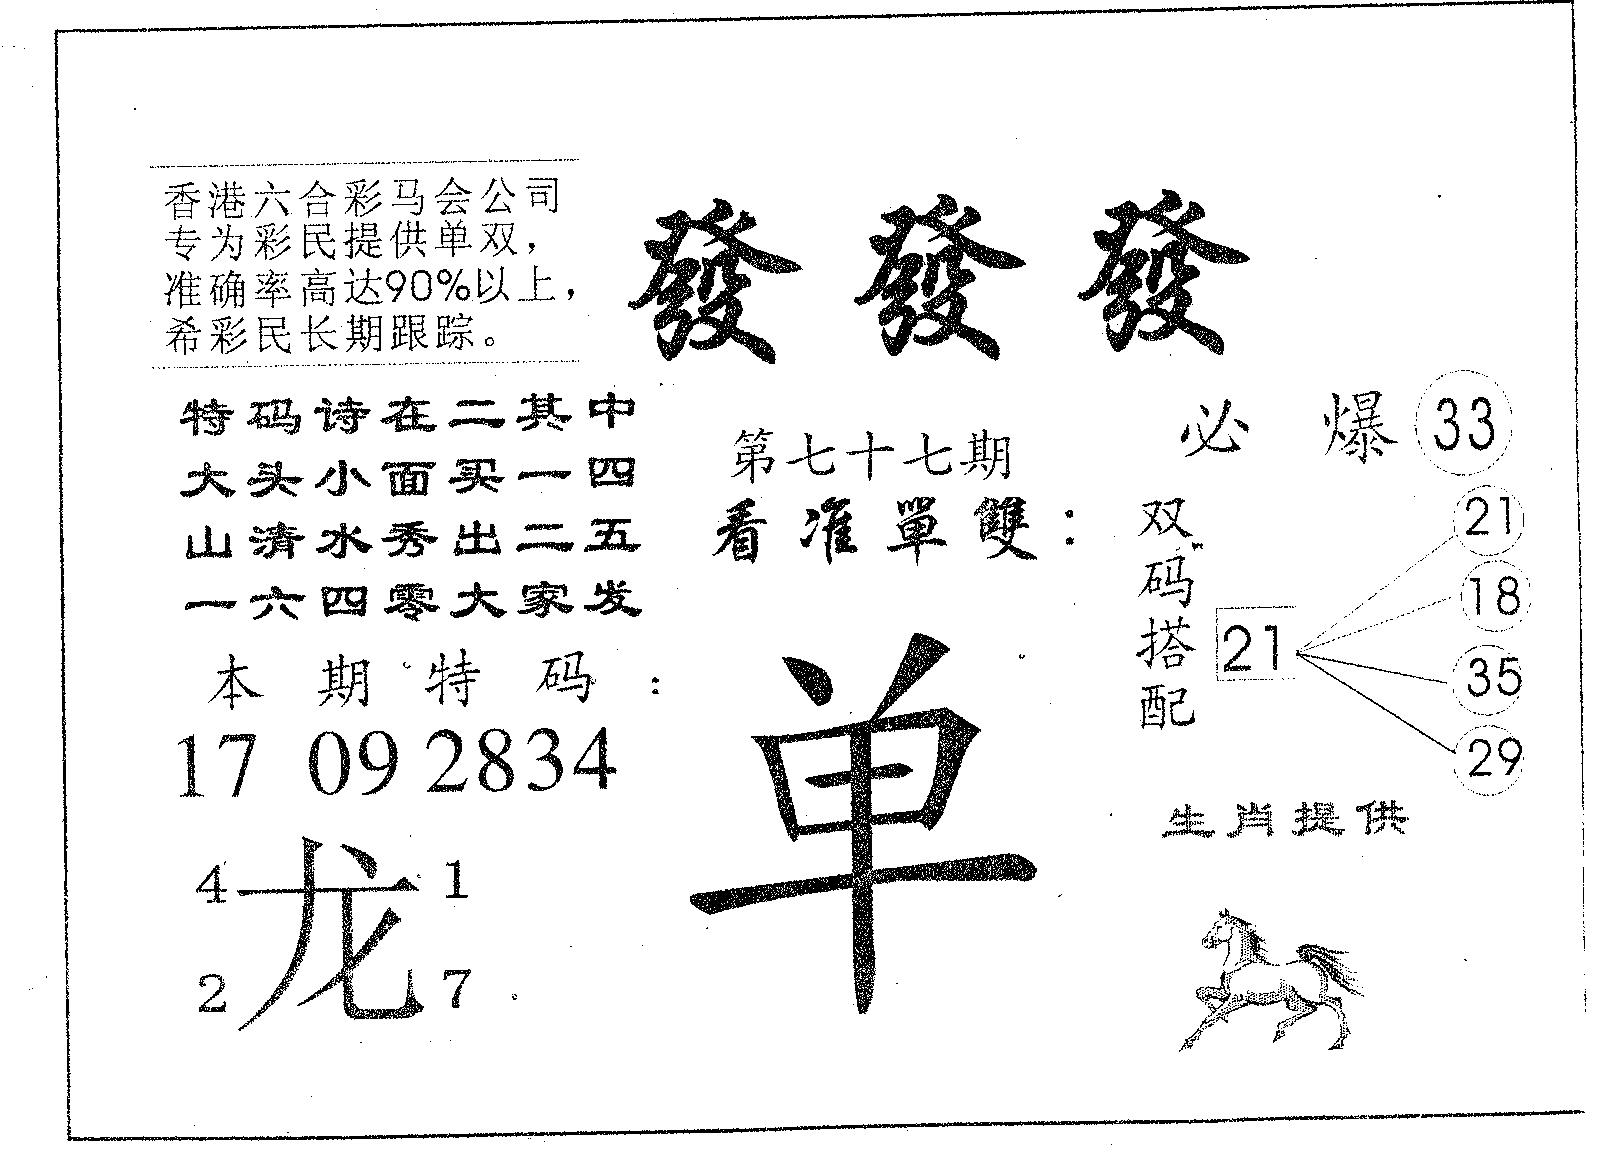 香港六合彩马会公司
专为彩民提供单双，
准确率高达90%以上，
希彩民长期跟踪。
發發發
特码诗在二其中
大头小面买一四
山清水秀出二五
一六四零大家发
本期特码：
17 09 2834
4 龙 1
2 7
第七十七期
看准單雙：
单
必爆 33
双码搭配
21
21
18
35
29
生肖提供